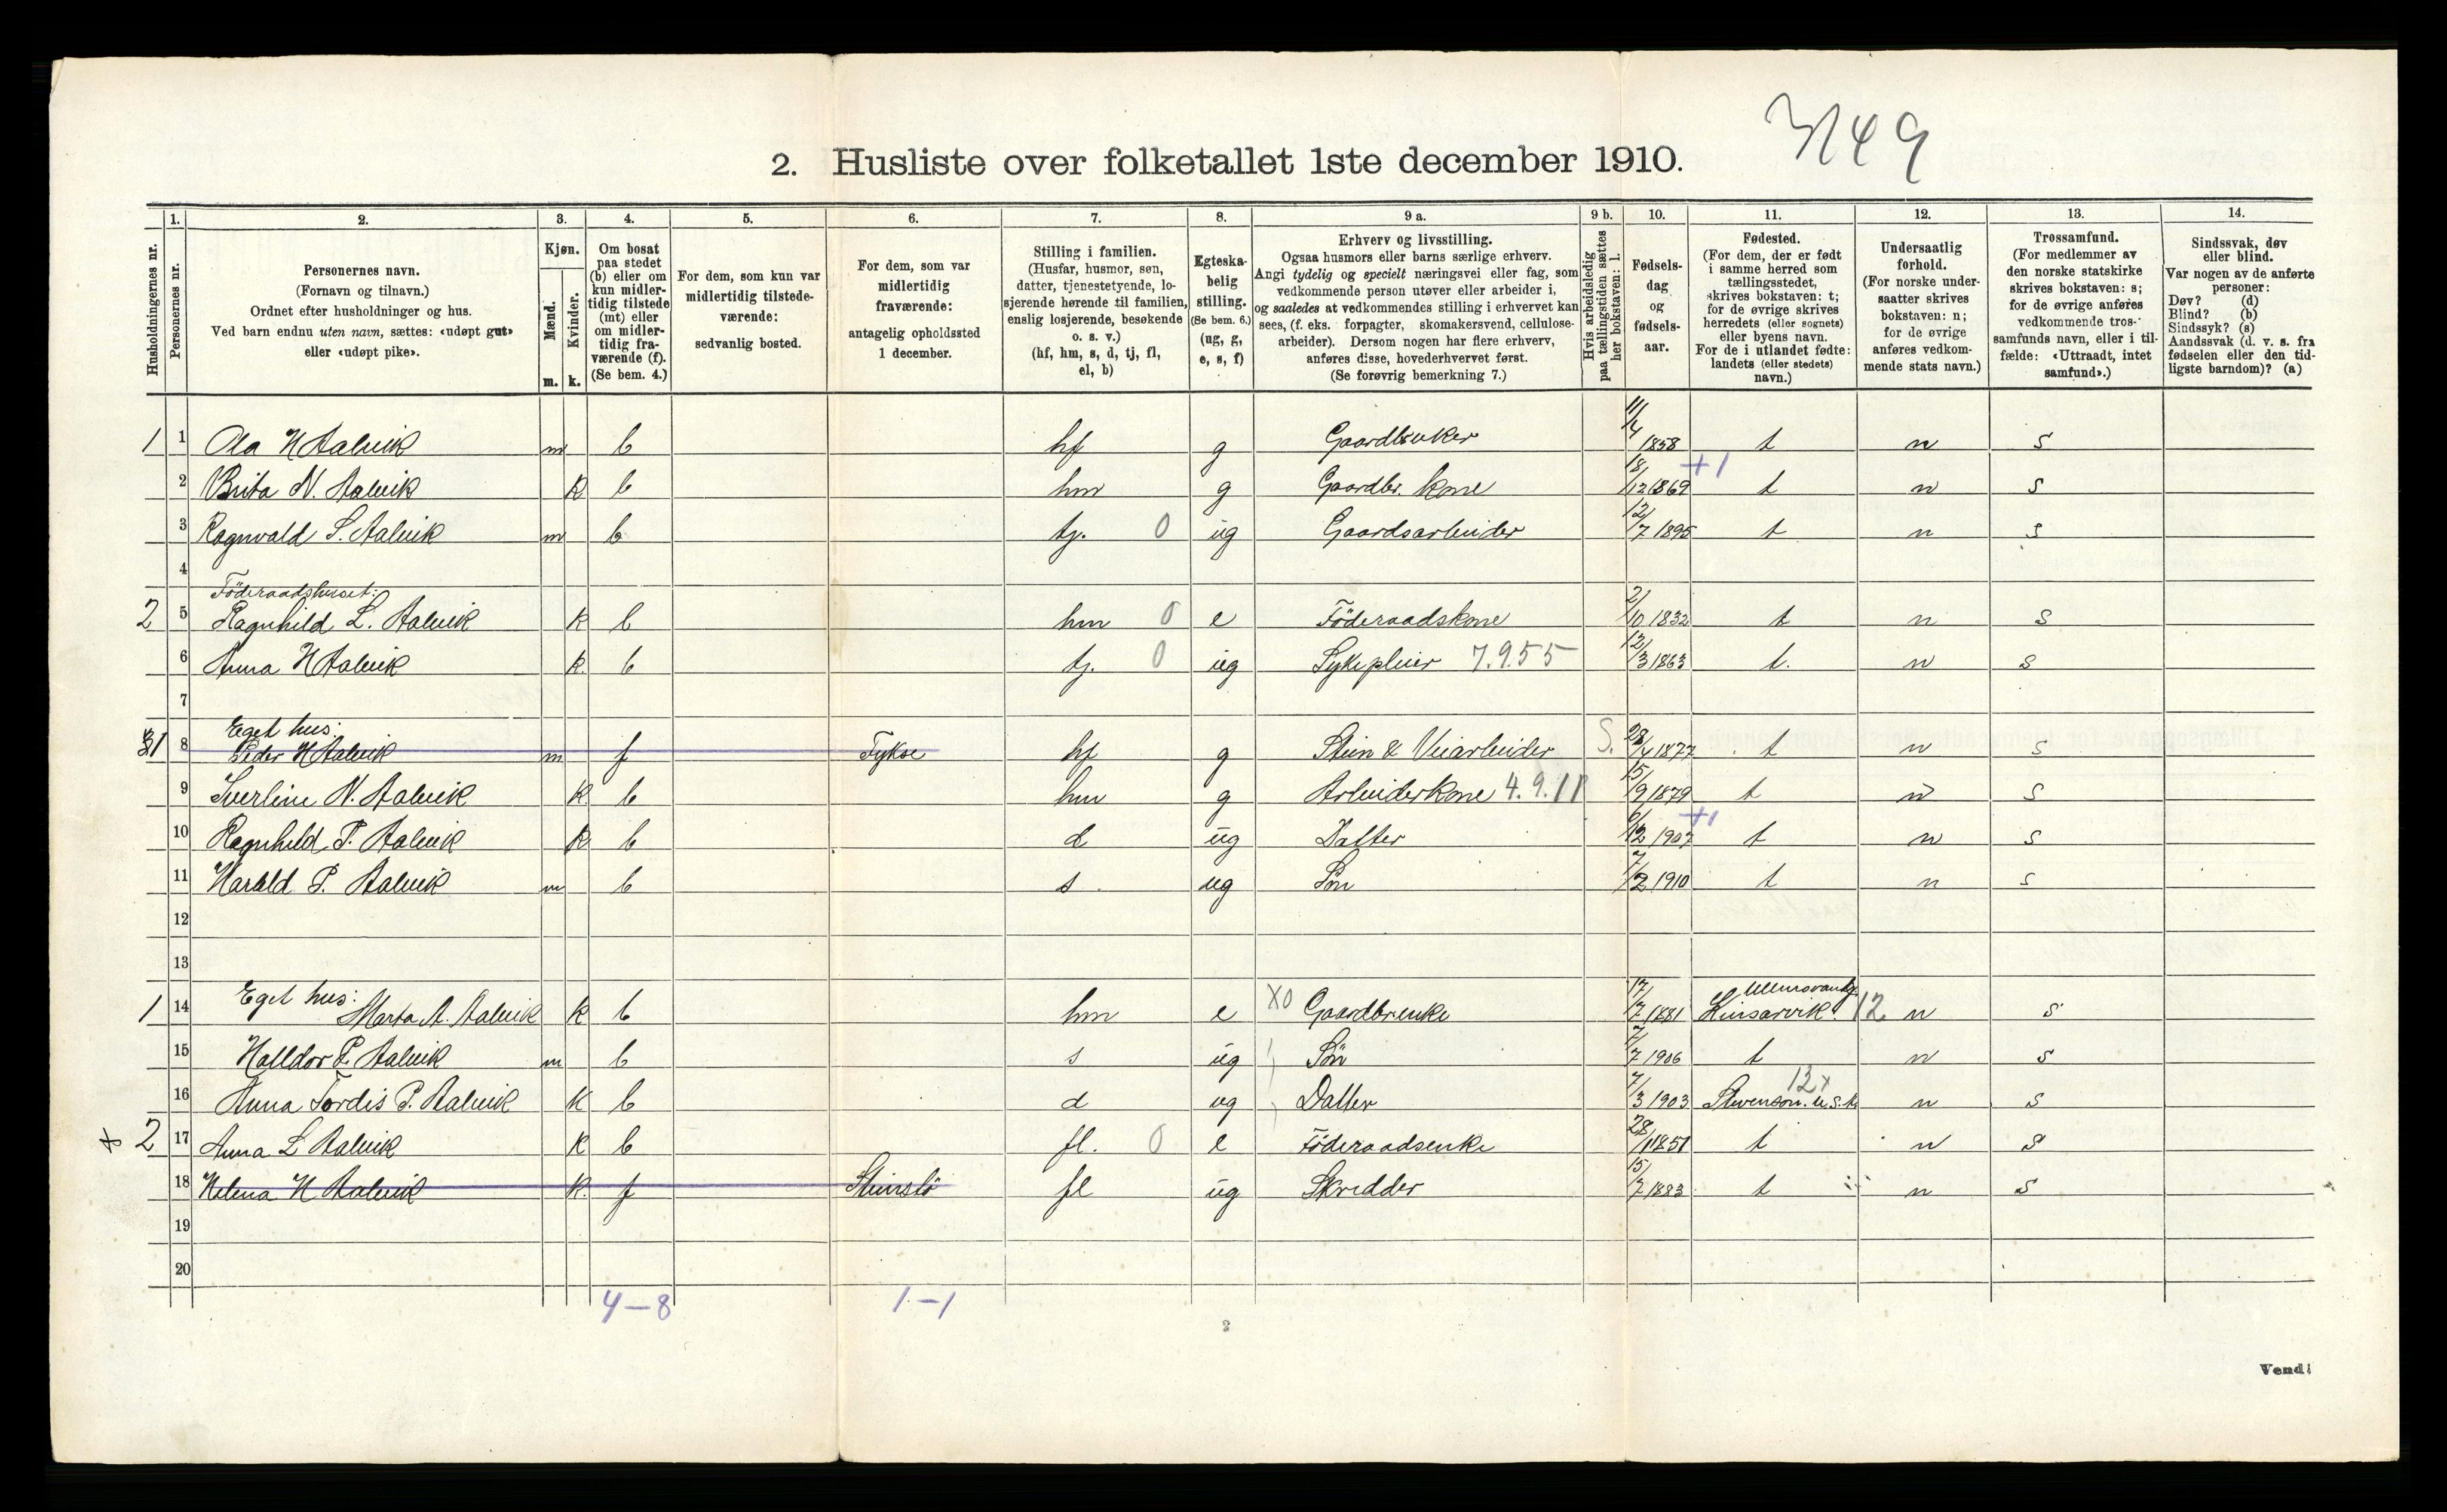 3149
2. Husliste over folketallet 1ste december 1910.
Husholdningernes nr.
1.
Personernes nr.
2.
Personernes navn.
(Fornavn og tilnavn.)
Ordnet efter husholdninger og hus.
Ved barn endnu uten navn, sættes: «udøpt gut»
eller «udøpt pike».
3.
Kjøn.
Mænd.
Kvinder.
m. k.
4.
Om bosat
paa stedet
(b) eller om
kun midler-
tidig tilstede
(mt) eller
om midler-
tidig fra-
værende (f).
(Se bem. 4.)
5.
For dem, som kun var
midlertidig tilstede-
værende:
sedvanlig bosted.
6.
For dem, som var
midlertidig
fraværende:
antagelig opholdssted
1 december.
7.
Stilling i familien.
(Husfar, husmor, søn,
datter, tjenestetyende, lo-
sjerende hørende til familien,
enslig losjerende, besøkende
o. s. v.)
(hf, hm, s, d, tj, fl,
el, b)
8.
Egteska-
belig
stilling.
(Se bem. 6.)
(ug, g,
e, s, f)
9 a.
Erhverv og livsstilling.
Ogsaa husmors eller barns særlige erhverv.
Angi tydelig og specielt næringsvei eller fag, som
vedkommende person utøver eller arbeider i,
og saaledes at vedkommendes stilling i erhvervet kan
sees, (f. eks. forpagter, skomakersvend, cellulose-
arbeider). Dersom nogen har flere erhverv,
anføres disse, hovederhvervet først.
(Se forøvrig bemerkning 7.)
9 b.
Hvis arbeidsledig
paa tællingstiden sættes
her bokstaven: l.
10.
Fødsels-
dag
og
fødsels-
aar.
11.
Fødested.
(For dem, der er født
i samme herred som
tællingsstedet,
skrives bokstaven: t;
for de øvrige skrives
herredets (eller sognets)
eller byens navn.
For de i utlandet fødte:
landets (eller stedets)
navn.)
12.
Undersaatlig
forhold.
(For norske under-
saatter skrives
bokstaven: n;
for de øvrige
anføres vedkom-
mende stats navn.)
13.
Trossamfund.
(For medlemmer av
den norske statskirke
skrives bokstaven: s;
for de øvrige anføres
vedkommende tros-
samfunds navn, eller i til-
fælde: «Uttraadt, intet
samfund».)
14.
Sindssvak, døv
eller blind.
Var nogen av de anførte
personer:
Døv? (d)
Blind? (b)
Sindssyk? (s)
Aandssvak (d. v. s. fra
fødselen eller den tid-
ligste barndom)? (a)
1 1 Ola H Aalvik m b hf g Gaardbruker 11/4 1858 t n s
2 Brita N. Aalvik k b hm g Gaardbr. kone 18/12 1869 +1 t n s
3 Ragnvald S. Aalvik m b tj. 0 ug Gaardsarbeider 12/7 1895 t n s
4
Föderaadshuset:
2 5 Ragnhild L. Aalvik k b hm 0 e Föderaadskone 2/10 1832 t n s
6 Anna H Aalvik k. b tj. 0 ug Sykepleier 7.9.55 12/3 1863 t. n s
7
Eget hus:
1 8 Peder H Aalvik m f Fykse hf g Stein & Veiarbeider S. 28/4 1877 t n s
9 Sverline N. Aalvik k b hm g Arbeiderkone 4.9.11 15/9 1879 t n s
10 Ragnhild P. Aalvik k b d ug Datter 6/12 1907 +1 t n s
11 Harald P. Aalvik m b s ug Søn 7/2 1910 t n s
12
13
Eget hus:
1 14 Marta A. Aalvik k b hm e X0 Gaardbr.enke 17/7 1881 Ullensvang Kinsarvik. 12 n s
15 Halldor P. Aalvik m b s ug Sön 7/7 1906 t n s
16 Anna Tordis P. Aalvik k b d ug Datter 7/3 1903 12x Stevenson. U.S.A. n s
x 2 17 Anna L Aalvik k b fl. 0 e Föderaadsenke 28/11 1851 t n s
18 Helena H Aalvik k. f Steinstö fl ug Skredder 15/7 1883 t n s
19
20
4-8 1-1
2
Vend!